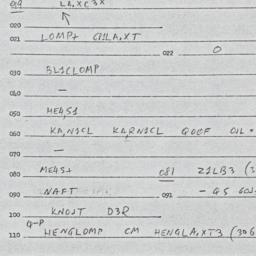 019 LA.XC3X
020
021 LOMP+ CM1LA.XT
022 0
030 5L1CLOMP
040 —
050 ME4S1
060 KA,N1CL KA,RN1CL GOOF OIL.
070 —
080 ME4S+ 081 Z1LB3
090 NAFT 091
100 KNOJT D3R
G-P
110 HENGLOMP CM HENGLA.XT3